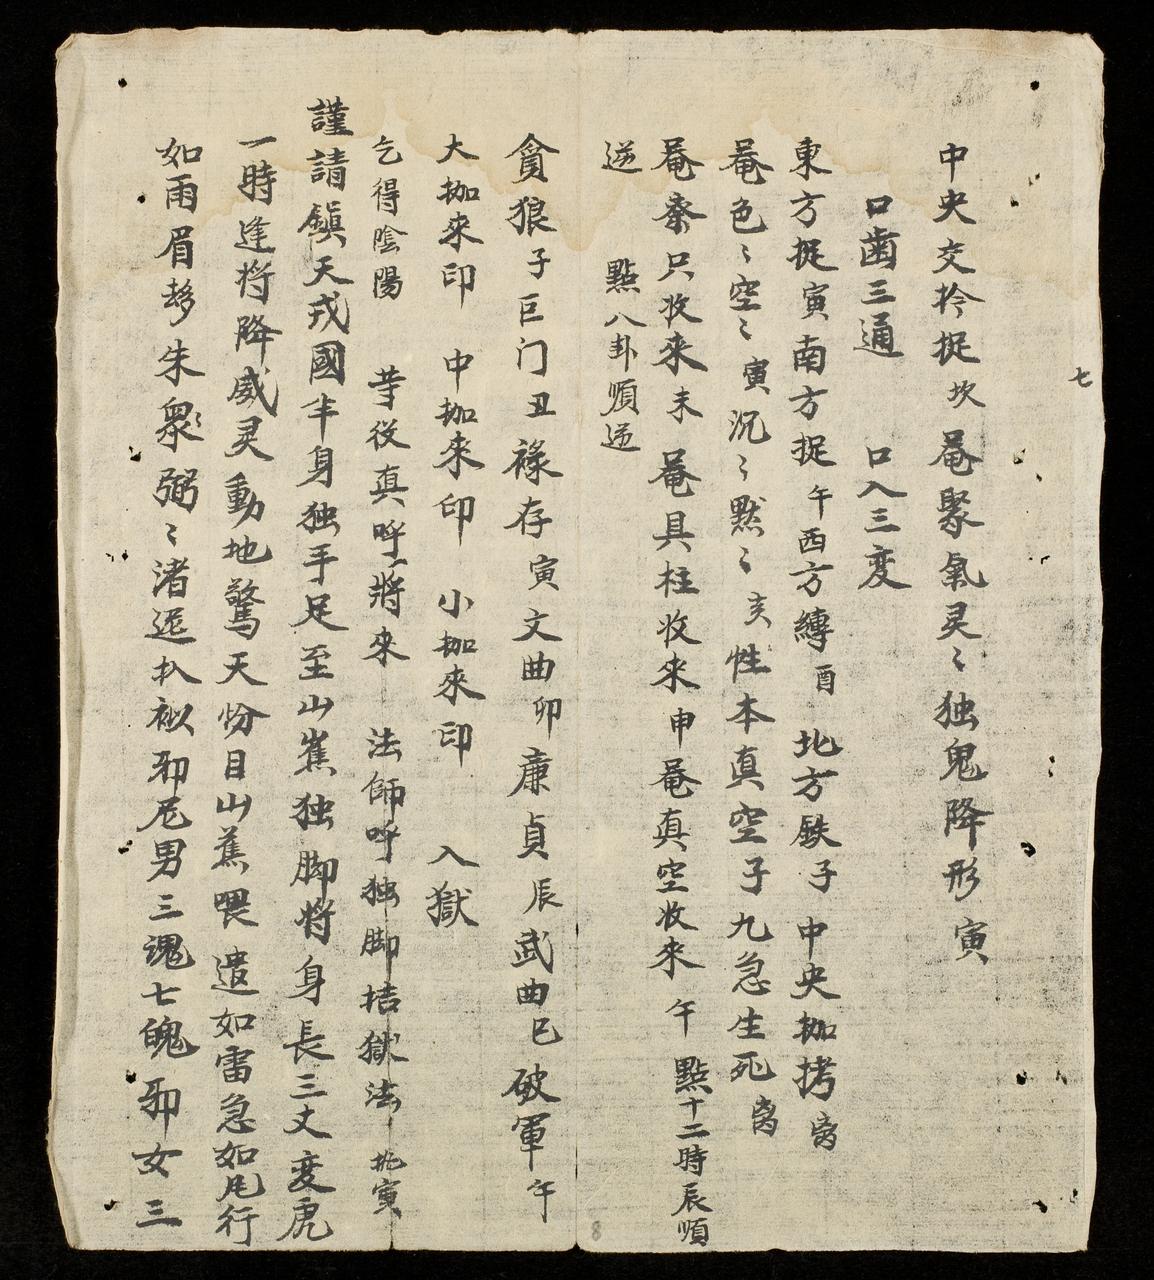 七
中央交拎捉坎菴聚氣灵〻独鬼降形寅
口齒三通 口入三変
東方捉寅南方捉午西方縛酉 北方鉄子 中央枷拷
菴色〻空〻寅沉〻黙〻亥性本真空子九急生死
菴 只收来未菴具柱收来申菴真空收来午 點十二時辰順
逆 點八卦順逆
貪狼子巨门丑祿存寅文曲卯廉貞辰武曲巳破軍午
大枷來印 中枷来印 小枷來印 入獄
乞得陰陽 役真呼將来 法師呼独脚 獄法 寅
謹請鎮天 國半身独手足至山 独脚将身長三丈変虎
一時逢将降威灵動地驚天 目山蕉喂遣如雷急如 行
如雨眉 朱衆弼〻渚 扒 邪 男三魂七魄邪女三
8